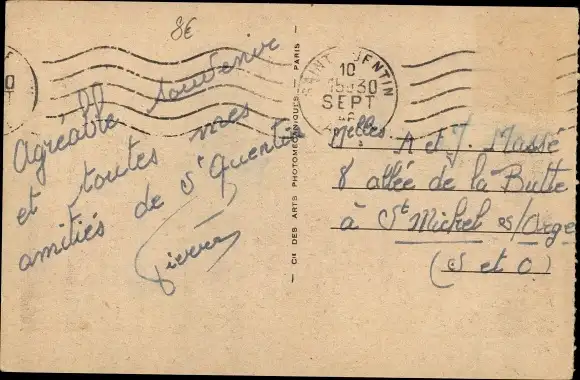 8€
Agréable souvenir
et toutes mes
amitiés de St Quentin
Pierre
CIE DES ARTS PHOTOMÉCANIQUES - PARIS -
SAINT QUENTIN
10
15H30
SEPT
Melles A et J. Massé
8 allée de la Butte
à St Michel s/Orge
(S et O.)